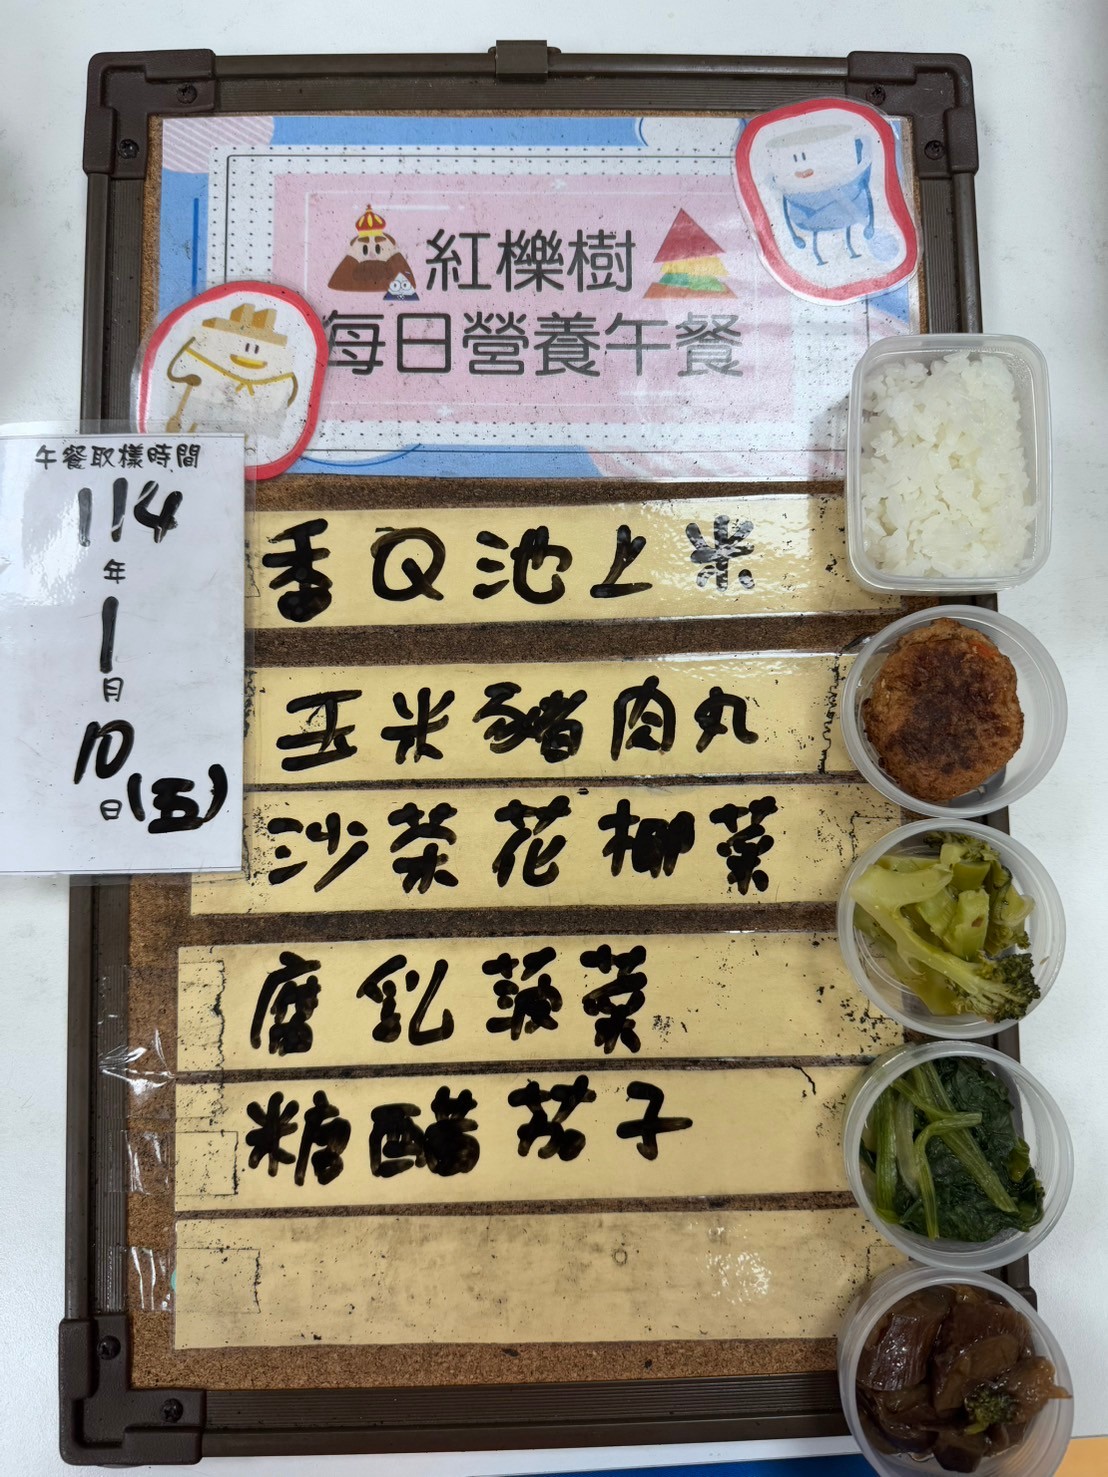 紅櫟樹
每日營養午餐
午餐取樣時間
114
年
1
月
10
日(五)
香Q池上米
玉米豬肉丸
沙茶花椰菜
腐乳菠菜
糖醋茄子